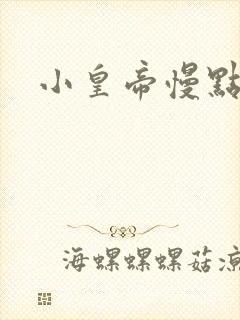 小皇帝慢點
海螺螺螺菇涼